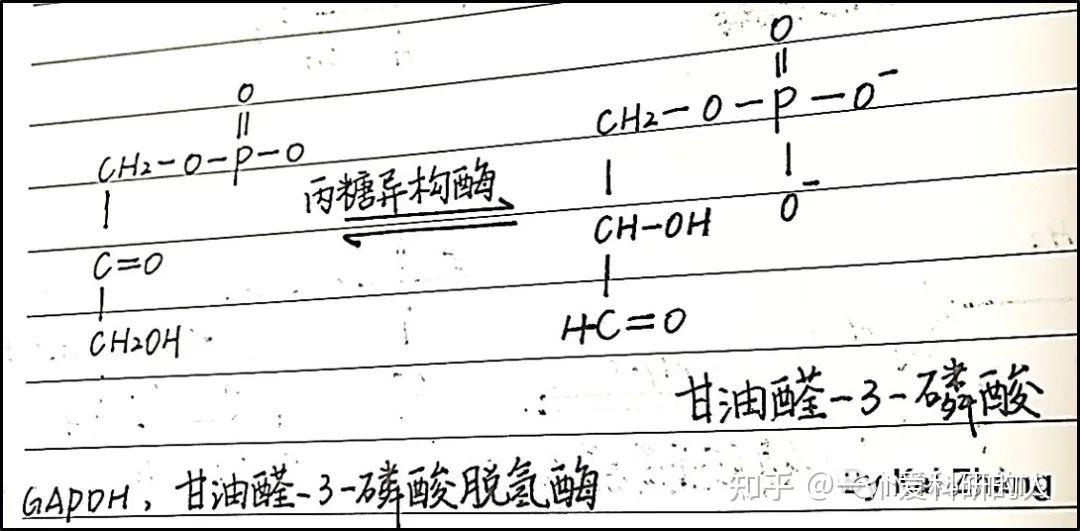 O
||
CH2-O-P-O
|
C=O
|
CH2OH
丙糖异构酶
O
||
CH2-O-P-O⁻
|
O⁻
|
CH-OH
|
HC=O
甘油醛-3-磷酸
GAPDH, 甘油醛-3-磷酸脱氢酶
知乎 @
爱科研的人